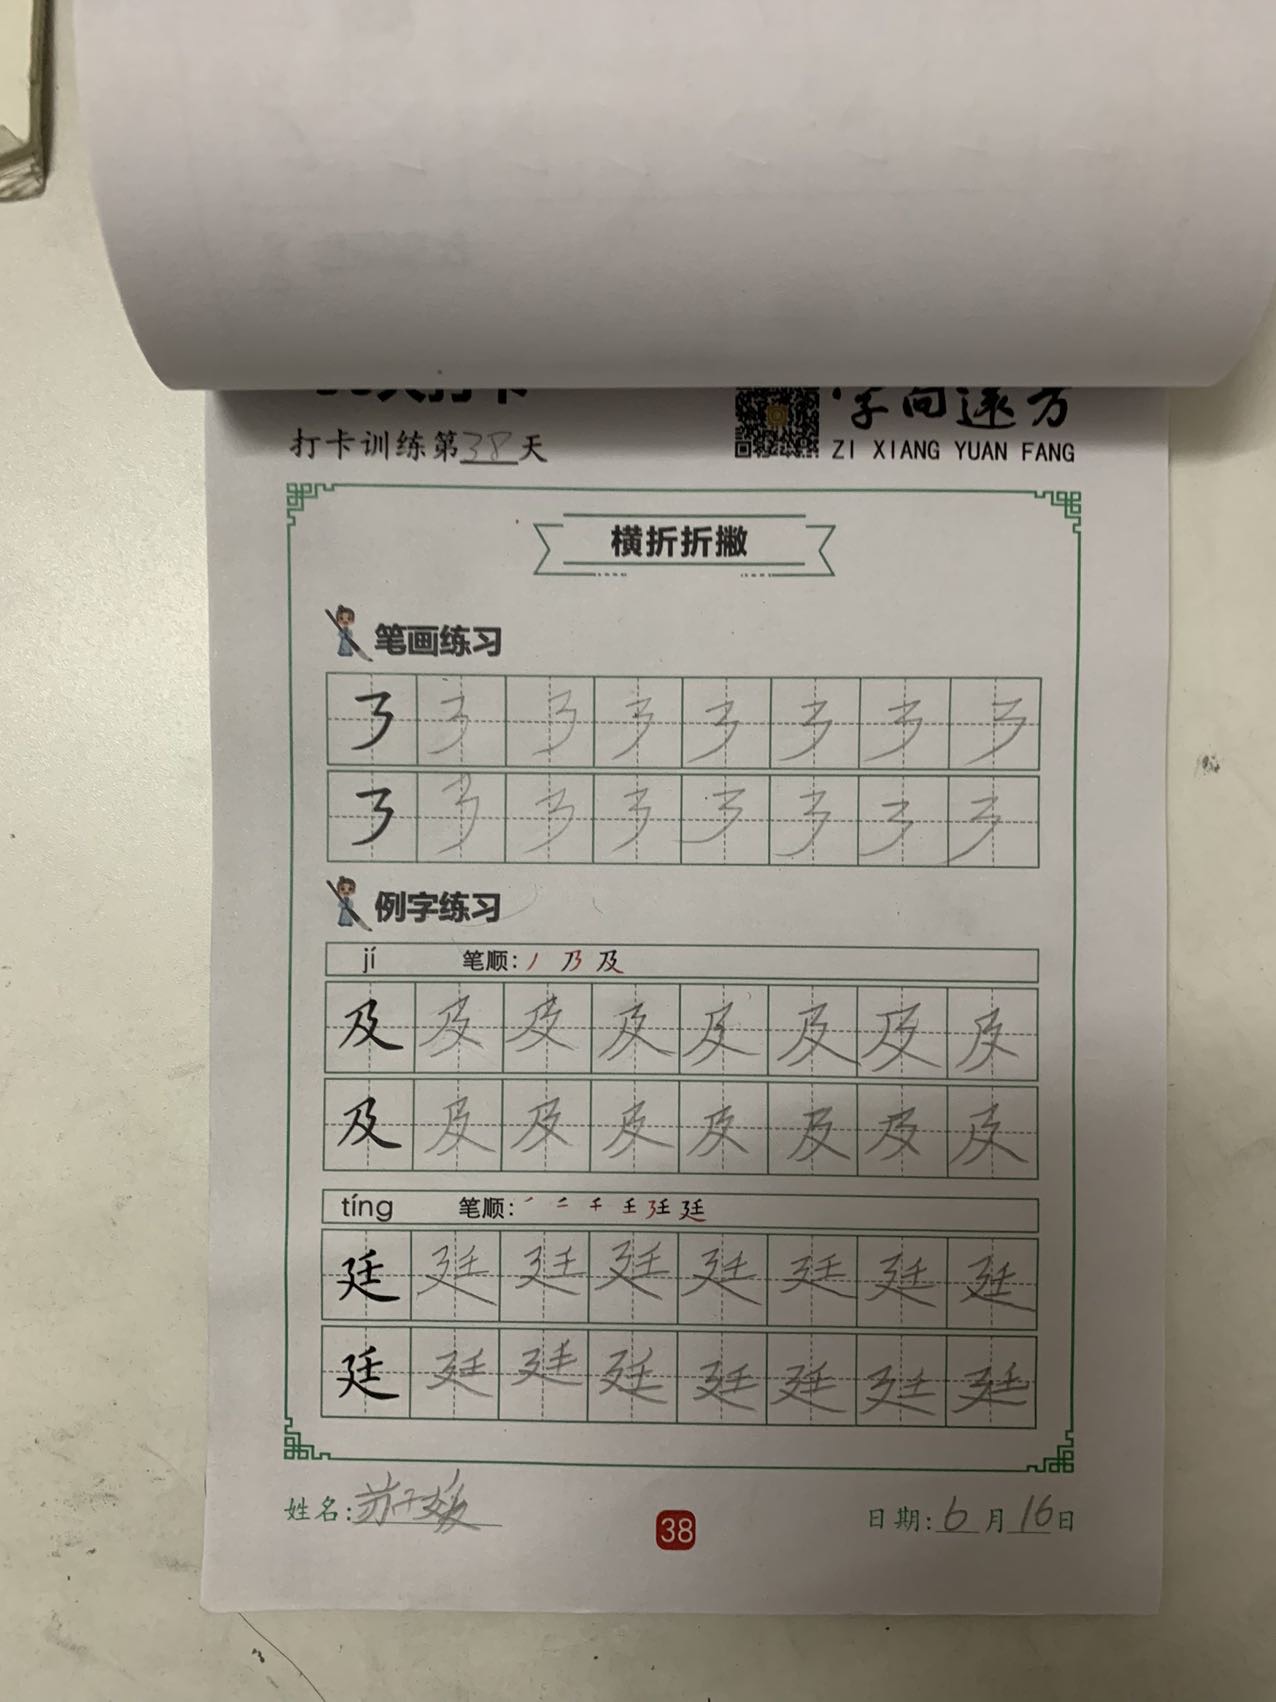 打卡训练第38天
字向远方
ZI XIANG YUAN FANG
横折折撇
笔画练习
例字练习
jí 笔顺: 丿 乃 及
及 及 及 及 及 及 及 及
及 及 及 及 及 及 及 及
tíng 笔顺: 廷
廷 廷 廷 廷 廷 廷 廷 廷
廷 廷 廷 廷 廷 廷 廷 廷
姓名:苏子媛
38
日期:6月16日